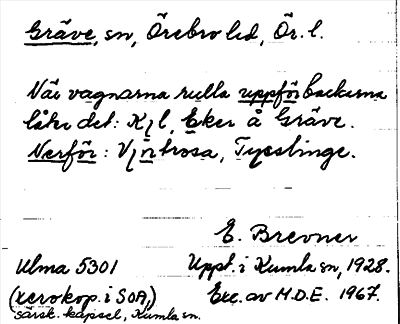 Gräve, sn, Örebro led, Ör. l.
När vagnarna rulla uppför backarna
låter det: Kil, Eker å Gräve.
Nerför: Vintrosa, Tysslinge.
E. Brevner
Ulma 5301 Uppt. i Kumla sn, 1928.
(xerokop. i SOA,) Exc. av M.D.E. 1967.
särsk. kapsel, Kumla sn.